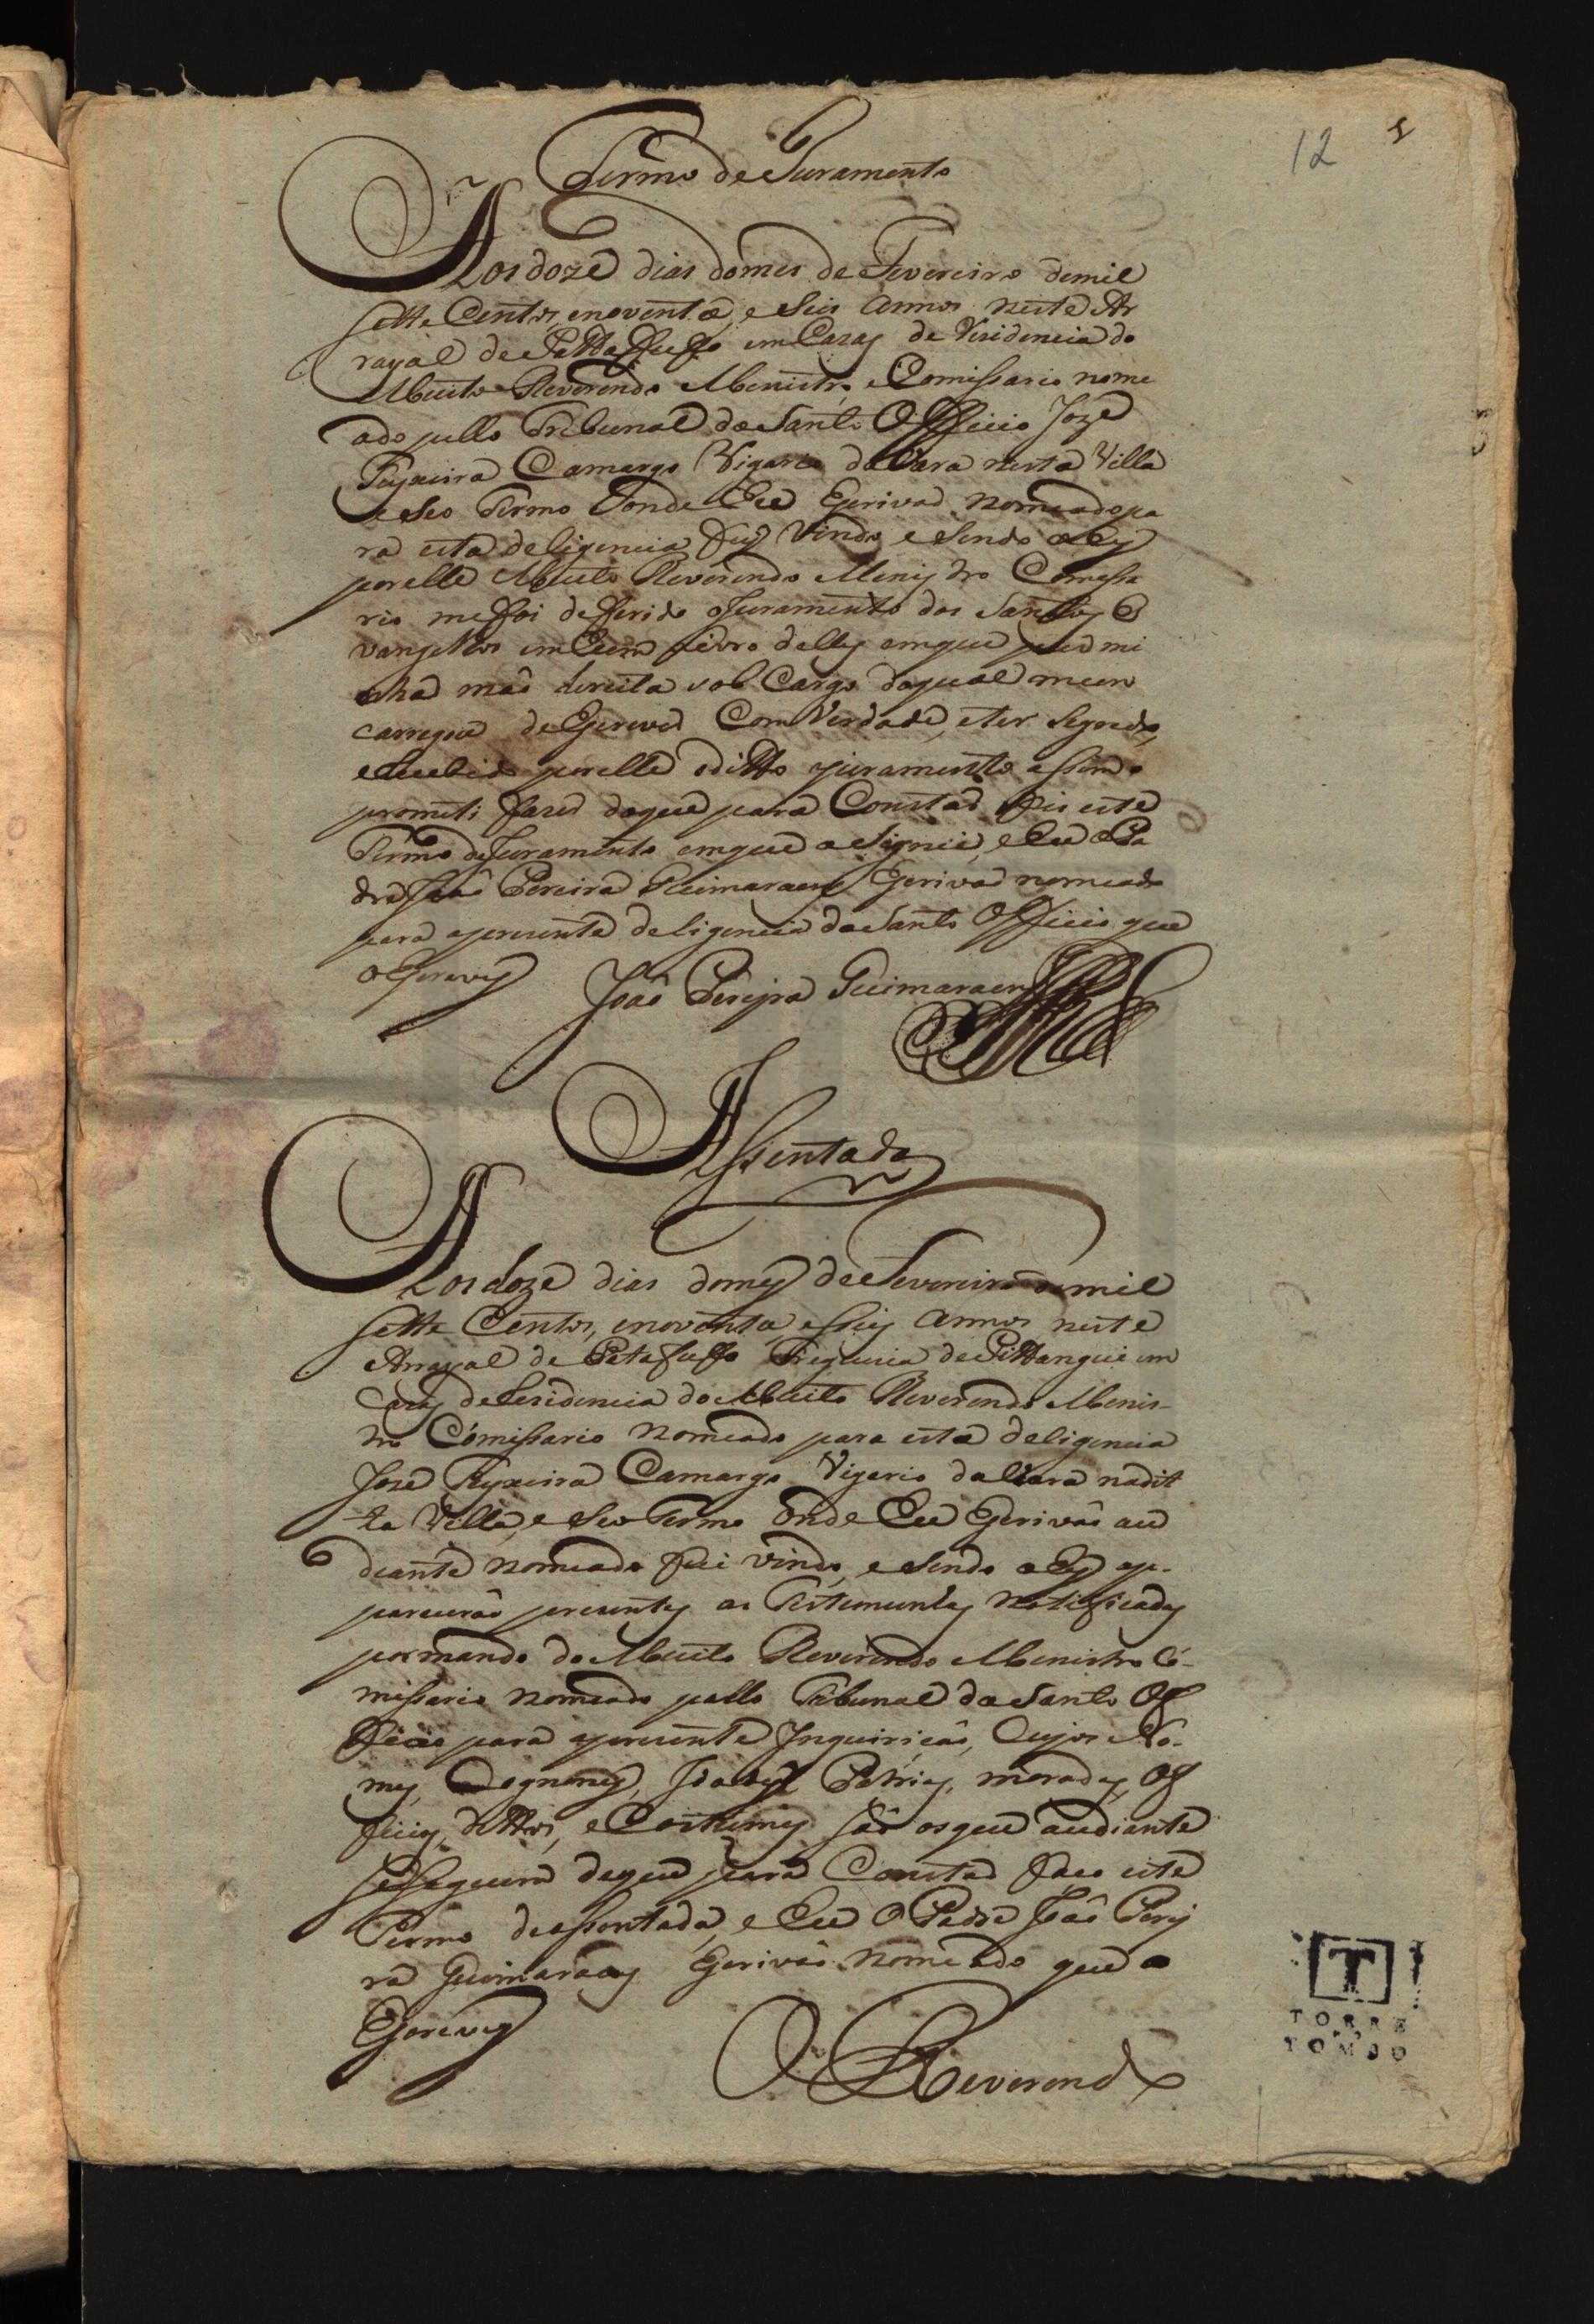 12
Termo de Juramento
Aos doze dias do mes de Fevereiro de mil
sette Centos, enoventa, e Seis Annos neste Ar
rayal de Pattafuffo em Cazas de Residencia do
Muito Reverendo Menistro, e Comissario nome
ado pello Tribunal do Santo Officio Joze
Teyxeira Camargo Vigario da Vara nesta Villa
e Seo Termo donde Eu Escrivaõ nomeado pa
ra esta deligencia fuy Vindo, e Sendo ahy
por elle Muito Reverendo Menistro Comessa
rio me foi defferido o Juramento dos Santos E
vangelhos em hum Livro delles em que pus mi
nha maõ dereita sob Cargo do qual meen
carregou de Escrever Com Verdade, e ter Segredo,
e Recebido por elle o ditto juramento assim o
prometi fazer do que para Constar fis este
Termo de Juramento em que asignei, e Eu o Pa
dre Joaõ Pereira Guimaraens Escrivaõ nomeado
para aprezente deligencia do Santo Officio que
o Escrevy
Joaõ Pereyra Guimaraens
Assentada
Aos doze dias do mes de Fevereiro de mil
sette Centos, enoventa, e seis Annos neste
Arrayal de Patafuffo Freguezia de Pittangui em
Cazas de Rezidencia do Muito Reverendo Menis-
tro Cómissario Nomeado para esta deligencia
Joze Teyxeira Camargo Vigario da Vara nadit
ta Villa, e Seo Termo onde Eu Escrivaõ au
deante nomeado fui vindo, e Sendo ahy ap-
pareceraõ prezentes as Testemunhas Notificadas
por mando do Muito Reverendo Menistro Có-
missario Nomeado pello Tribunal do Santo Of
ficio para aprezente Inquiriçaõ, Cujos No-
mes, Cognomes, Idades, Patrias, moradas, Of
ficios, dittos, e Costumes saõ os que audiante
se Seguem de que para Constar faço este
Termo de assentada, e Eu O Padre Joaõ Perey
ra Guimaraens Escrivaõ Nomeado que o
Escrevy
O Reverendo
T
TORRE
DO
TOMBO